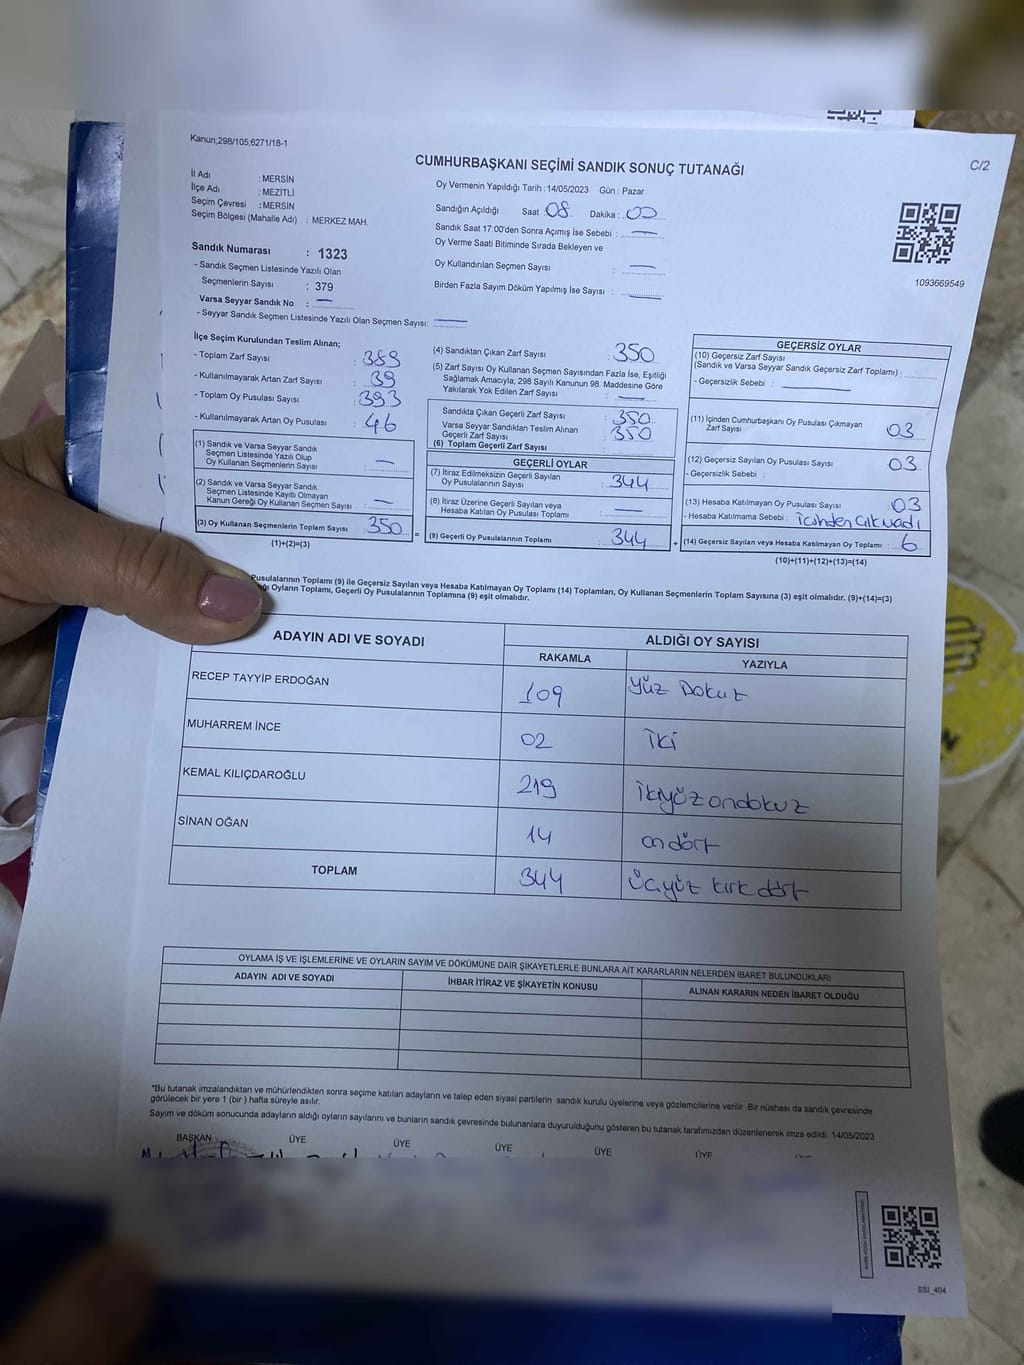 Kanun;298/105;6271/18-1
CUMHURBAŞKANI SEÇİMİ SANDIK SONUÇ TUTANAĞI
C/2
İl Adı : MERSİN
İlçe Adı : MEZİTLİ
Seçim Çevresi : MERSİN
Seçim Bölgesi (Mahalle Adı) : MERKEZ MAH.
Sandık Numarası : 1323
- Sandık Seçmen Listesinde Yazılı Olan
Seçmenlerin Sayısı : 379
Varsa Seyyar Sandık No : —
- Seyyar Sandık Seçmen Listesinde Yazılı Olan Seçmen Sayısı: —
Oy Vermenin Yapıldığı Tarih : 14/05/2023 Gün : Pazar
Sandığın Açıldığı Saat : 08 Dakika : 00
Sandık Saat 17:00'den Sonra Açımış İse Sebebi : —
Oy Verme Saati Bitiminde Sırada Bekleyen ve
Oy Kullandırılan Seçmen Sayısı : —
Birden Fazla Sayım Döküm Yapılmış İse Sayısı : —
1093669549
İlçe Seçim Kurulundan Teslim Alınan;
- Toplam Zarf Sayısı : 389
- Kullanılmayarak Artan Zarf Sayısı : 39
- Toplam Oy Pusulası Sayısı : 393
- Kullanılmayarak Artan Oy Pusulası : 46
(1) Sandık ve Varsa Seyyar Sandık
Seçmen Listesinde Yazılı Olup
Oy Kullanan Seçmenlerin Sayısı : —
(2) Sandık ve Varsa Seyyar Sandık
Seçmen Listesinde Kayıtlı Olmayan
Kanun Gereği Oy Kullanan Seçmen Sayısı : —
(3) Oy Kullanan Seçmenlerin Toplam Sayısı : 350
(1)+(2)=(3)
(4) Sandıktan Çıkan Zarf Sayısı : 350
(5) Zarf Sayısı Oy Kullanan Seçmen Sayısından Fazla İse, Eşitliği
Sağlamak Amacıyla; 298 Sayılı Kanunun 98. Maddesine Göre
Yakılarak Yok Edilen Zarf Sayısı : —
Sandıkta Çıkan Geçerli Zarf Sayısı : 350
Varsa Seyyar Sandıktan Teslim Alınan
Geçerli Zarf Sayısı : 350
(6) Toplam Geçerli Zarf Sayısı
GEÇERLİ OYLAR
(7) İtiraz Edilmeksizin Geçerli Sayılan
Oy Pusulalarının Sayısı : 344
(8) İtiraz Üzerine Geçerli Sayılan veya
Hesaba Katılan Oy Pusulası Toplamı : —
= (9) Geçerli Oy Pusulalarının Toplamı : 344 +
GEÇERSİZ OYLAR
(10) Geçersiz Zarf Sayısı
(Sandık ve Varsa Seyyar Sandık Geçersiz Zarf Toplamı) :
- Geçersizlik Sebebi : —
(11) İçinden Cumhurbaşkanı Oy Pusulası Çıkmayan
Zarf Sayısı 03
(12) Geçersiz Sayılan Oy Pusulası Sayısı 03
- Geçersizlik Sebebi :
(13) Hesaba Katılmayan Oy Pusulası Sayısı : 03
- Hesaba Katılmama Sebebi : içinden çıkmadı
(14) Geçersiz Sayılan veya Hesaba Katılmayan Oy Toplamı : 6
(10)+(11)+(12)+(13)=(14)
Pusulalarının Toplamı (9) ile Geçersiz Sayılan veya Hesaba Katılmayan Oy Toplamı (14) Toplamları, Oy Kullanan Seçmenlerin Toplam Sayısına (3) eşit olmalıdır. (9)+(14)=(3)
Oyların Toplamı, Geçerli Oy Pusulalarının Toplamına (9) eşit olmalıdır.
ADAYIN ADI VE SOYADI ALDIĞI OY SAYISI
RAKAMLA YAZIYLA
RECEP TAYYİP ERDOĞAN 109 Yüz Dokuz
MUHARREM İNCE 02 İki
KEMAL KILIÇDAROĞLU 219 İkiyüzondokuz
SİNAN OĞAN 14 ondört
TOPLAM 344 üçyüz kırk dört
OYLAMA İŞ VE İŞLEMLERİNE VE OYLARIN SAYIM VE DÖKÜMÜNE DAİR ŞİKAYETLERLE BUNLARA AİT KARARLARIN NELERDEN İBARET BULUNDUKLARI
ADAYIN ADI VE SOYADI İHBAR İTİRAZ VE ŞİKAYETİN KONUSU ALINAN KARARIN NEDEN İBARET OLDUĞU
*Bu tutanak imzalandıktan ve mühürlendikten sonra seçime katılan adayların ve talep eden siyasi partilerin sandık kurulu üyelerine veya gözlemcilerine verilir. Bir nüshası da sandık çevresinde
görülecek bir yere 1 (bir ) hafta süreyle asılır.
Sayım ve döküm sonucunda adayların aldığı oyların sayılarını ve bunların sandık çevresinde bulunanlara duyurulduğunu gösteren bu tutanak tarafımızdan düzenlenerek imza edildi. 14/05/2023
BAŞKAN ÜYE ÜYE ÜYE ÜYE ÜYE
SSI_404